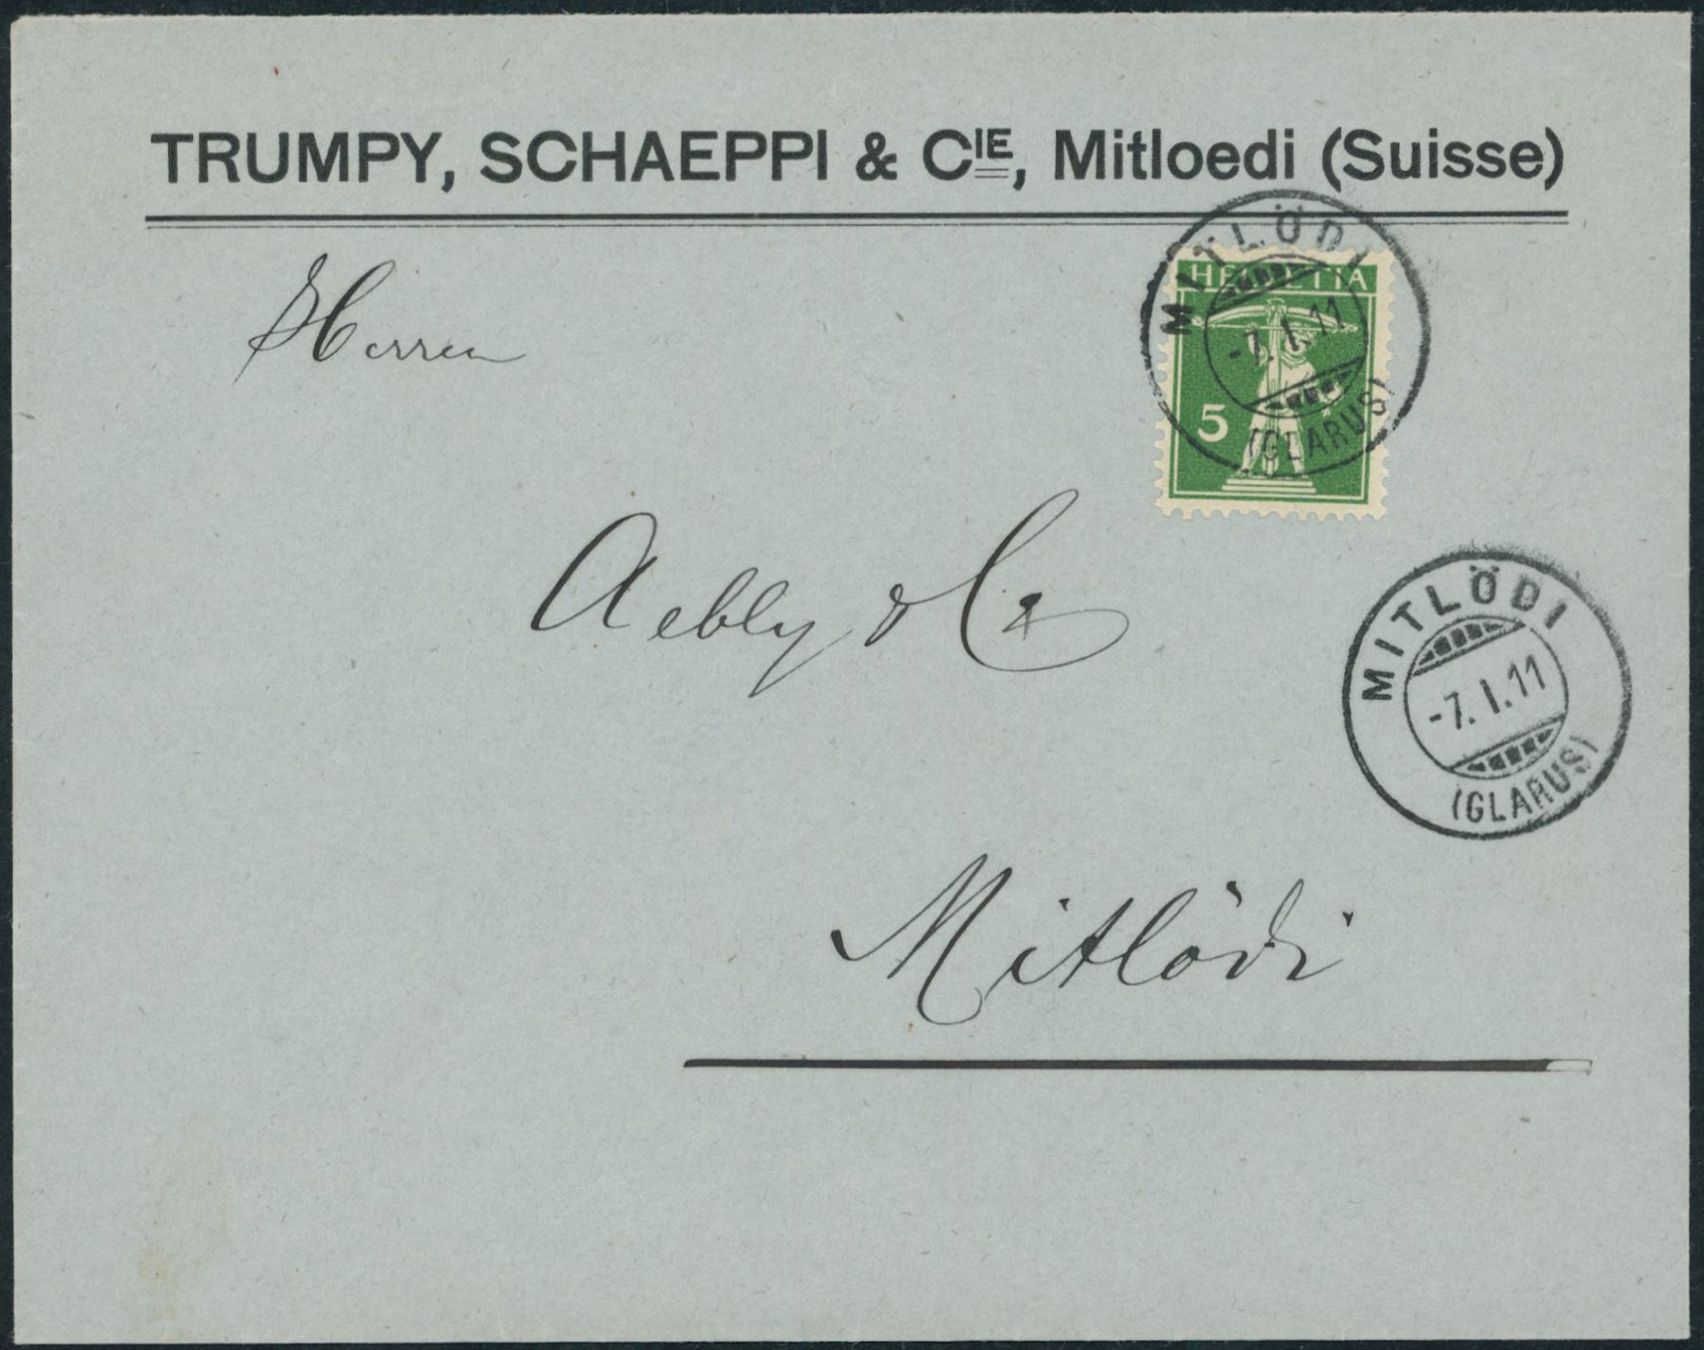 TRUMPY, SCHAEPPI & CIE, Mitloedi (Suisse)
MITLÖDI
HELVETIA
-7. I. 11
5
(GLARUS)
Herren
Aebly & Co
MITLÖDI
-7. I. 11
(GLARUS)
Mitlödi